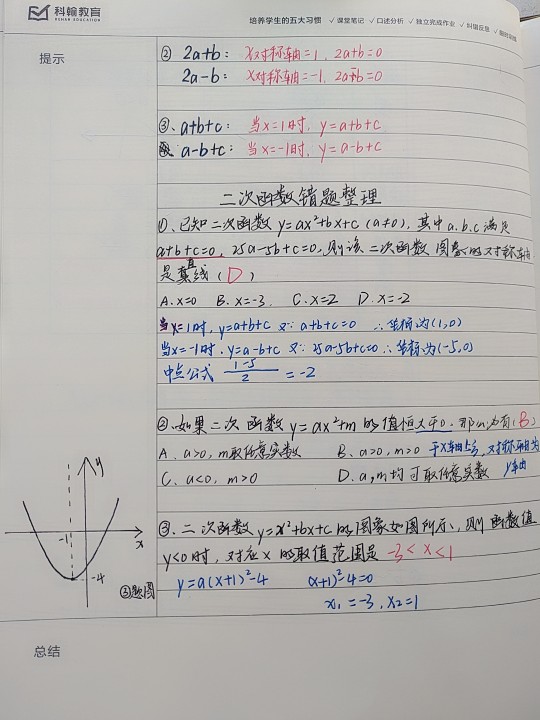 科翰教育
培养学生的五大习惯 ✓课堂笔记 ✓口述分析 ✓独立完成作业 ✓纠错反思
提示
② 2a+b: x对称轴=1, 2a+b=0
2a-b: x对称轴=-1, 2a-b=0
③、a+b+c: 当x=1时, y=a+b+c
a-b+c: 当x=-1时, y=a-b+c
二次函数错题整理
①、已知二次函数 y=ax²+bx+c (a≠0), 其中 a.b.c 满足
a+b+c=0, 25a-5b+c=0, 则该二次函数图象的对称轴
是直线 ( D )
A. x=0 B. x=-3. C. x=2 D. x=-2
当x=1时, y=a+b+c 又∵ a+b+c=0 ∴坐标为(1,0)
当x=-1时, y=a-b+c 又∵ 25a-5b+c=0 ∴坐标为(-5,0)
中点公式 (1-5)/2 = -2
②、如果二次函数 y=ax²+m 的值恒大于0. 那么必有(B)
A. a>0, m取任意实数 B. a>0, m>0 于x轴上方, 对称轴为
C. a<0, m>0 D. a,m均可取任意实数 y轴
③、二次函数y=x²+bx+c的图象如图所示, 则函数值
y<0时, 对应x的取值范围是 -3<x<1
y=a(x+1)²-4 (x+1)²-4=0
x₁=-3, x₂=1
y
-1
x
-4
③题图
总结